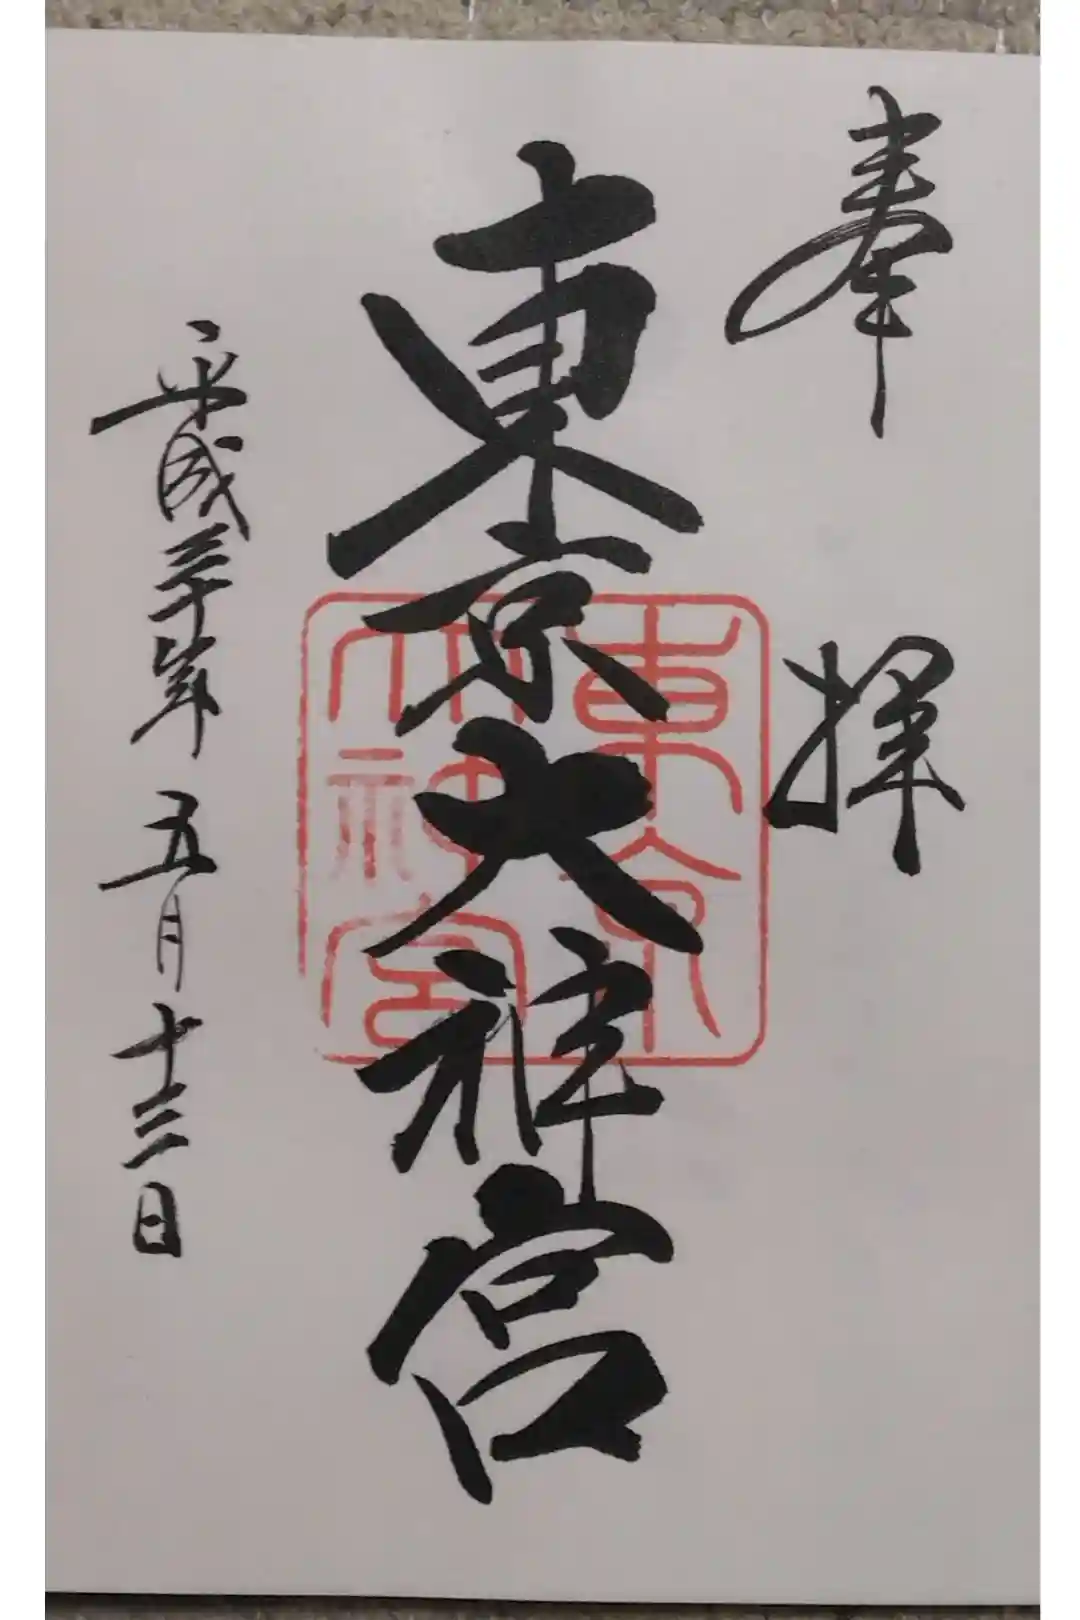 奉拝
東京大神宮
東京大神宮
平成三十年五月十三日